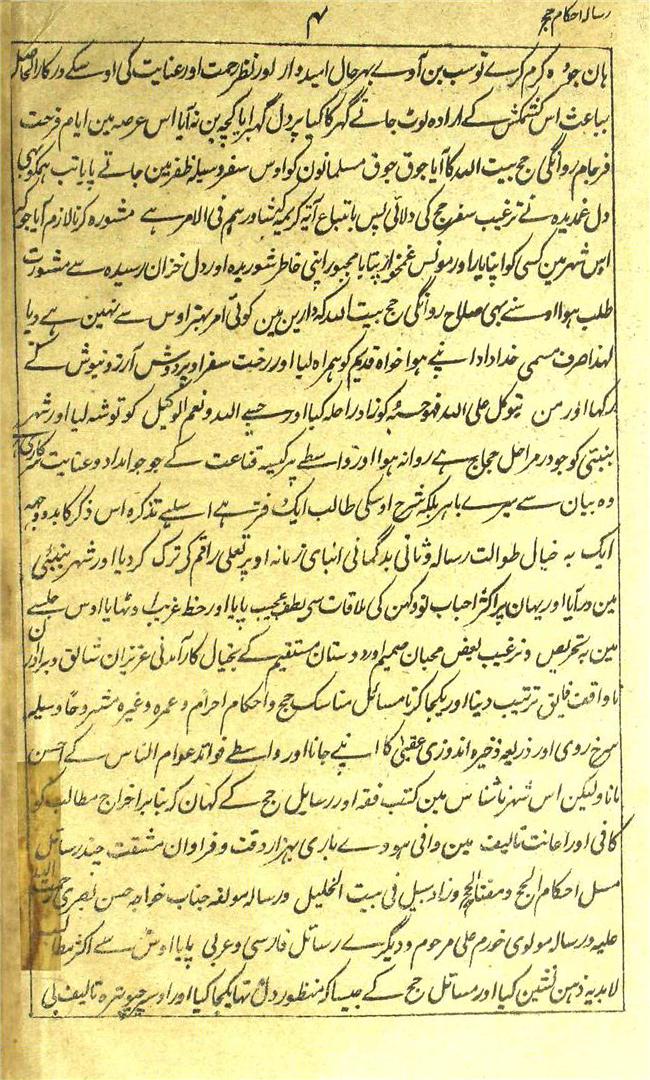 رساله احکام حج
۴
هان جو وه کرم کرے توسب بن آوے بهر حال امیدوار اور نظر رحمت اور عنایت کی اوسکے درکار الحاصل
بباعث اس کشمکش کے اراده لوٹ جانے گهر کا کیا پر دل گهبرایا کچهه بن نه آیا اس عرصه مین ایام فرحت
فرجام روانگی حج بیت الله کا آیا جوق جوق مسلمانون کو اوس سفر وسیله ظفر مین جاتے پایا تب همکو بهی
دل غمدیده نے ترغیب سفر حج کی دلائی پس باتباع آیهٔ کریمه شاورهم فی الامر سے مشوره کرنا لازم آیا جو که
اس شهر مین کسی کو اپنا یار اور مونس غمخوار نپایا مجبور اپنی خاطر شوریده اور دل خزان رسیده سے مشورت
طلب هوا اوسنے بهی صلاح روانگی حج بیت الله که دارین مین کوئی امر بهتر اوس سے نهین هے دیا
لهذا صرف مسمی خداداد اپنے هوا خواه قدیم کو همراه لیا اور رخت سفر اوپر دوش آرزو نیوش کے
رکها اور من یتوکل علی الله فهو حسبه کو زاد راحله کیا اور حسبی الله ونعم الوکیل کو توشه لیا اور شهر
بنبئی کو جو در مراحل حجاج هے روانه هوا اور واسطے پر کیسه قناعت کے جو جو امداد و عنایت سرکاری هے
وه بیان سے میرے باهر بلکه شرح اوسکی طالب ایک دفتر هے اسلیے تذکره اس ذکر کا بدو وجهه
ایک به خیال طوالت رساله و ثانی بدگمانی ابنای زمانه اوپر تعلی راقم کی ترک کردیا اور شهر بنبئی
مین در آیا اور یهان پر اکثر احباب نو و کهن کی ملاقات سی لطف عجیب پایا اور حظ غریب اوٹهایا اوس جلسے
مین به تحریص و ترغیب بعض محبان صمیم اور دوستان مستقیم کے بخیال کار آمدنی عزیزان شائق و برادران
ناواقف فایق ترتیب دینا اور یکجا کرنا مسائل مناسک حج و احکام احرام و عمره وغیره مشروحا وسیله
سرخ روی اور ذریعه ذخیره اندوزی عقبیٰ کا اپنے جانا اور واسطے فوائد عوام الناس کے احسن
مانا ولیکن اس شهر ناشناس مین کتب فقه اور رسایل حج کے کهان که بنابر اخراج مطالب کو
کافی اور اعانت تالیف مین وافی هووے باری بهزار دقت و فراوان مشقت چند رسائل
مسل احکام الحج و مفتاح الحج وزاد سبیل فی بیت الخلیل و رساله مولفه جناب خواجه حسن بصری رحمت الله
علیه و رساله مولوی خورم علی مرحوم و دیگرے رسائل فارسی و عربی پایا اوس سے اکثر مطالب
لابدیه ذهن نشین کیا اور مسائل حج کے جیسا که منظور دل تها یکجا کیا اور اوسے جیو تیره تالیف بی